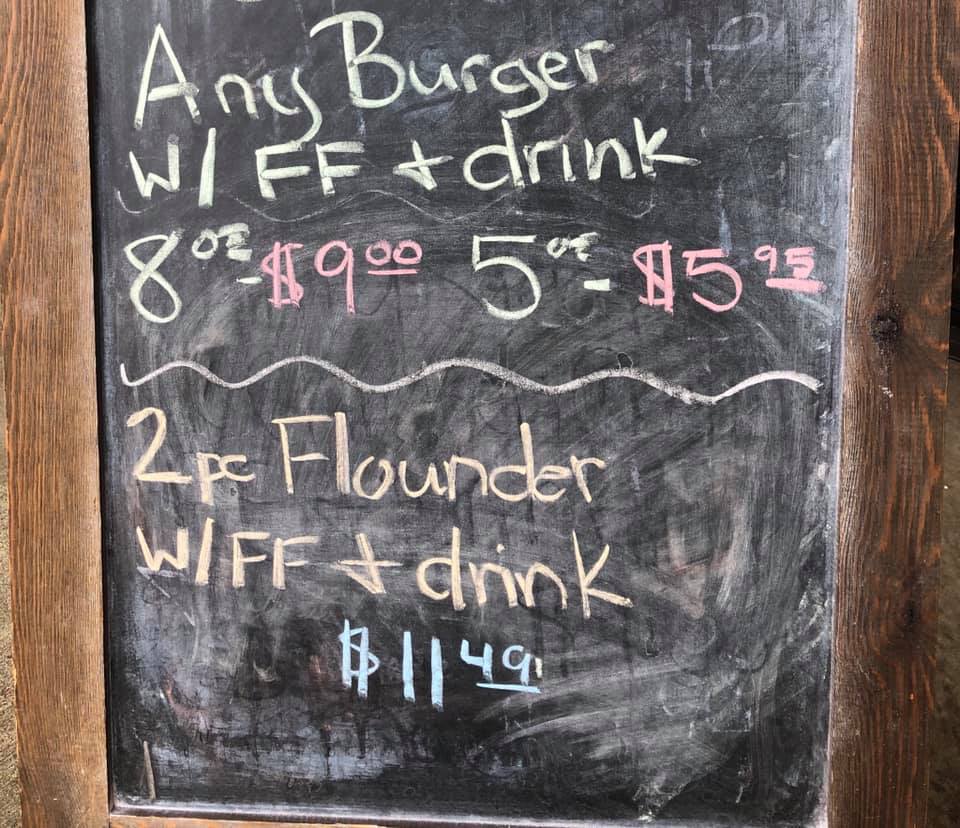 Any Burger
W/ FF + drink
8 oz - $9.00 5 oz - $5.95
2 pc Flounder
W/ FF + drink
$11.49